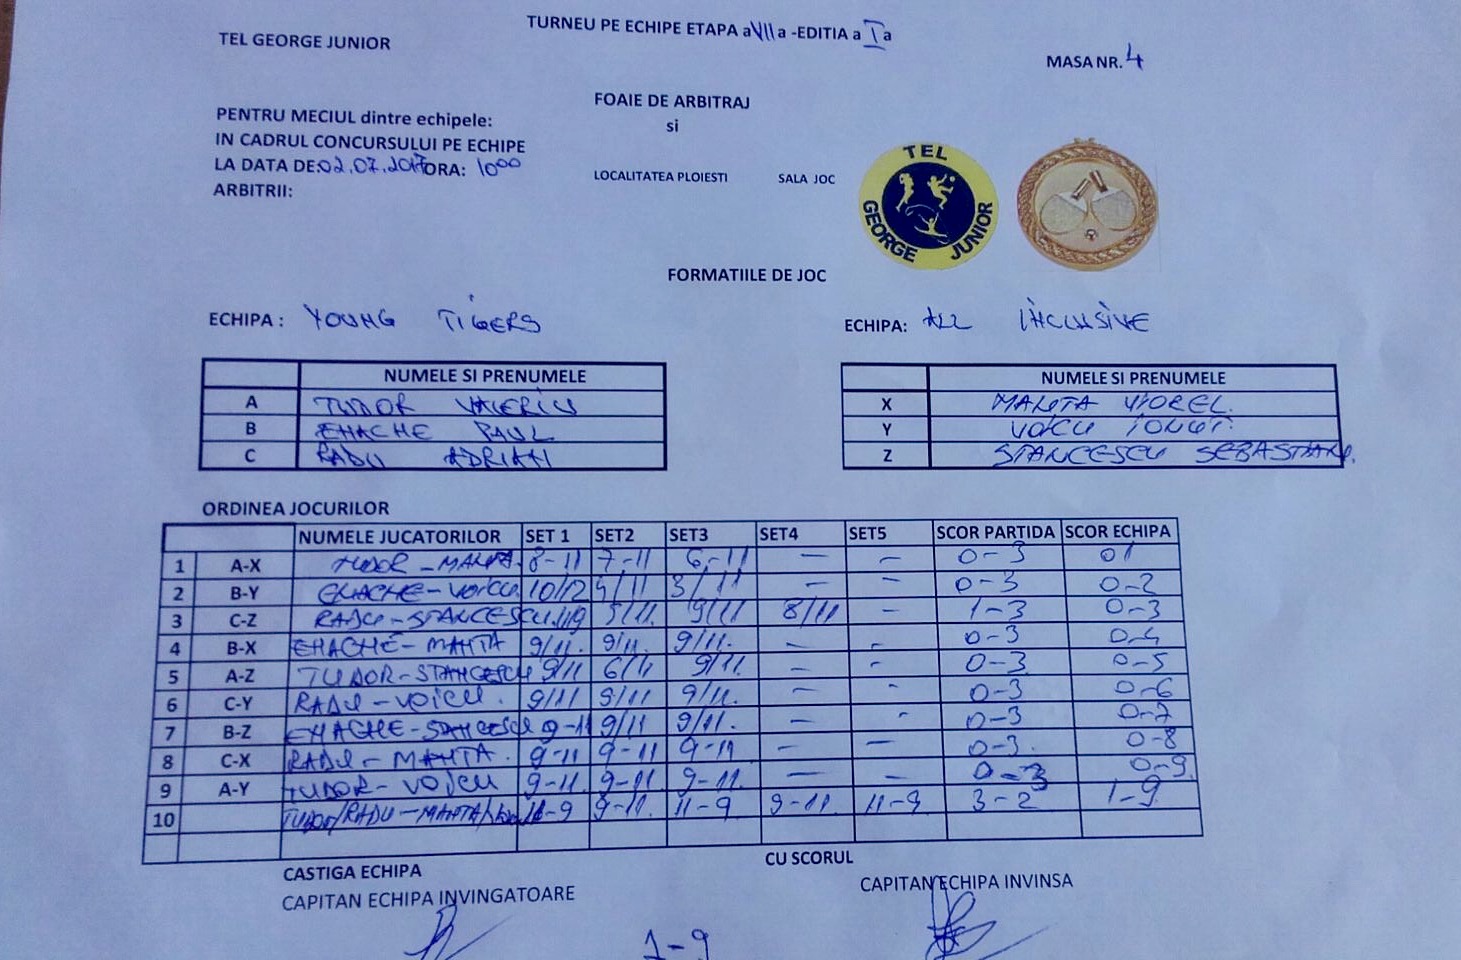 TURNEU PE ECHIPE ETAPA aVIIa -EDITIA a I a
TEL GEORGE JUNIOR
MASA NR. 4
FOAIE DE ARBITRAJ
si
PENTRU MECIUL dintre echipele:
IN CADRUL CONCURSULUI PE ECHIPE
LA DATA DE:02.07.2017 ORA: 1000
ARBITRII:
LOCALITATEA PLOIESTI SALA JOC
TEL
GEORGE JUNIOR
FORMATIILE DE JOC
ECHIPA : YOUNG TIGERS
ECHIPA: ALL INCLUSIVE
NUMELE SI PRENUMELE
A TUDOR VALERIU
B ENACHE PAUL
C RADU ADRIAN
NUMELE SI PRENUMELE
X MANTA VIOREL.
Y VOICU IONUT.
Z STANCESCU SEBASTIAN.
ORDINEA JOCURILOR
NUMELE JUCATORILOR SET 1 SET2 SET3 SET4 SET5 SCOR PARTIDA SCOR ECHIPA
1 A-X TUDOR - MANTA. 8-11 7-11 6-11 — — 0-3 01
2 B-Y ENACHE - VOICU 10/12 3/11 — — 0-3 0-2
3 C-Z RADU - STANCESCU 9/11 8/11 — 1-3 0-3
4 B-X ENACHE - MANTA 9/11. 9/11. 9/11. — — 0-3 0-4
5 A-Z TUDOR - STANCESCU 9/11 6/11 9/11. — — 0-3 0-5
6 C-Y RADU - VOICU. 9/11 9/11 9/11. — - 0-3 0-6
7 B-Z ENACHE - STANCESCU 9-11 9/11 9/11. — - 0-3 0-7
8 C-X RADU - MANTA. 9-11 9-11 9-11 — — 0-3. 0-8
9 A-Y TUDOR - VOICU 9-11. 9-11. 9-11. — — 0-3 0-9
10 TUDOR/RADU - MANTA/ 11-9 9-11. 11-9 9-11. 11-9 3-2 1-9
CASTIGA ECHIPA CU SCORUL
CAPITAN ECHIPA INVINGATOARE CAPITAN ECHIPA INVINSA
1-9